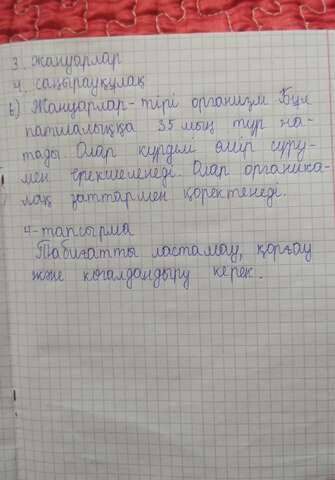 3. жануарлар
4. саңырауқұлақ
в) Жануарлар-тірі организм Бұл
патшалыққа 35 мың түр жа-
тады Олар күрделі өмір сүру-
мен ерекшеленеді. Олар органика-
лақ заттармен қоректенеді.
4-тапсырма
Табиғатты ластамау, қорғау
және коғалдандыру керек.